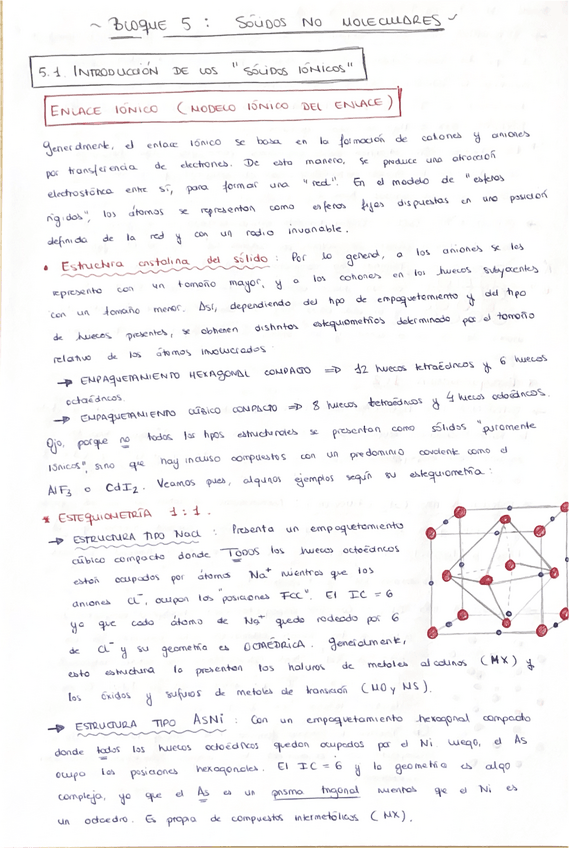 ~ BLOQUE 5 : SÓLIDOS NO MOLECULARES ~
5.1. INTRODUCCIÓN DE LOS "SÓLIDOS IÓNICOS"
ENLACE IÓNICO (MODELO IÓNICO DEL ENLACE)
Generalmente, el enlace iónico se basa en la formación de cationes y aniones
por transferencia de electrones. De esta manera, se produce una atracción
electrostática entre sí, para formar una "red". En el modelo de "esferas
rígidas", los átomos se representan como esferas fijas dispuestas en una posición
definida de la red y con un radio invariable.
• Estructura cristalina del sólido : Por lo general, a los aniones se les
representa con un tamaño mayor, y a los cationes en los huecos subyacentes
con un tamaño menor. Así, dependiendo del tipo de empaquetamiento y del tipo
de huecos presentes, se obtienen distintas estequiometrías determinado por el tamaño
relativo de los átomos involucrados
→ EMPAQUETAMIENTO HEXAGONAL COMPACTO ⇒ 12 huecos tetraédricos y 6 huecos
octaédricos.
→ EMPAQUETAMIENTO CÚBICO COMPACTO ⇒ 8 huecos tetraédricos y 4 huecos octaédricos.
Ojo, porque no todos los tipos estructurales se presentan como sólidos "puramente
iónicos", sino que hay incluso compuestos con un predominio covalente como el
AlF3 o CdI2. Veamos pues, algunos ejemplos según su estequiometría :
* ESTEQUIOMETRÍA 1:1.
→ ESTRUCTURA TIPO NaCl : Presenta un empaquetamiento
cúbico compacto donde TODOS los huecos octaédricos
están ocupados por átomos Na+ mientras que los
aniones Cl-, ocupan las "posiciones FCC". El IC = 6
ya que cada átomo de Na+ queda rodeado por 6
de Cl- y su geometría es OCTAÉDRICA. Generalmente,
esta estructura la presentan los haluros de metales alcalinos (MX) y
los óxidos y sulfuros de metales de transición (MO y MS).
→ ESTRUCTURA TIPO AsNi : Con un empaquetamiento hexagonal compacto
donde todos los huecos octaédricos quedan ocupados por el Ni. Luego, el As
ocupa las posiciones hexagonales. El IC = 6 y la geometría es algo
compleja, ya que el As es un prisma trigonal mientras que el Ni es
un octaedro. Es propia de compuestos intermetálicos (MX).